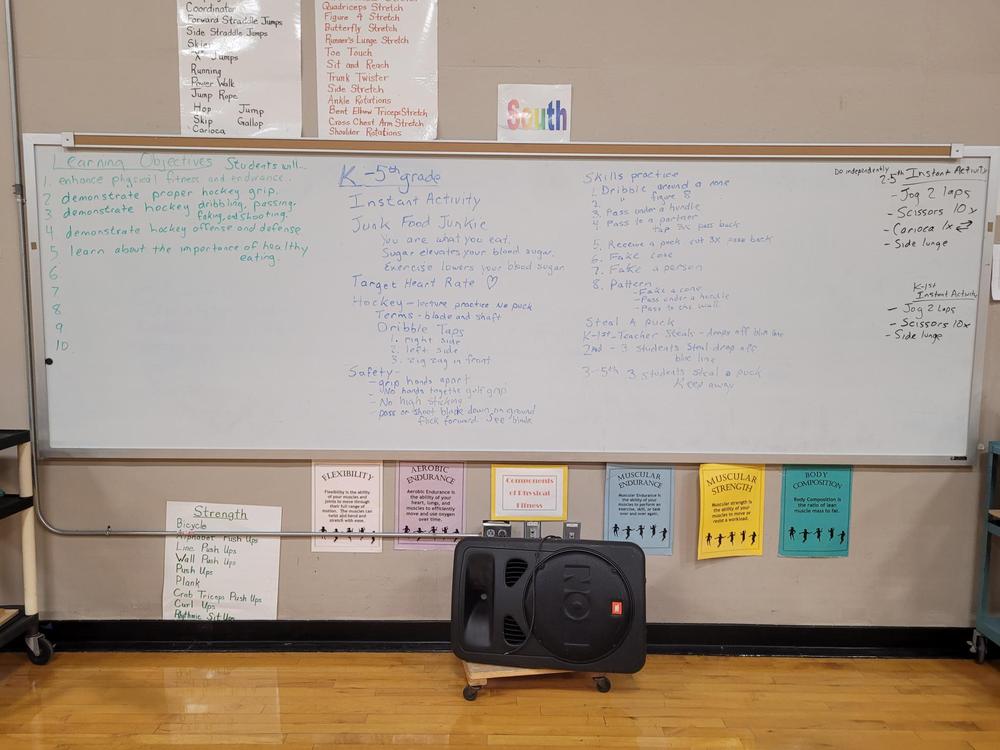 Coordinator
Forward Straddle Jumps
Side Straddle Jumps
Skier
"X" Jumps
Running
Power Walk
Jump Rope
Hop Jump
Skip Gallop
Carioca
Quadriceps Stretch
Figure 4 Stretch
Butterfly Stretch
Runner's Lunge Stretch
Toe Touch
Sit and Reach
Trunk Twister
Side Stretch
Ankle Rotations
Bent Elbow Triceps Stretch
Cross Chest Arm Stretch
Shoulder Rotations
South
Learning Objectives Students will...
1. enhance physical fitness and endurance.
2 demonstrate proper hockey grip.
3 demonstrate hockey dribbling, passing,
faking, and shooting.
4 demonstrate hockey offense and defense
5 learn about the importance of healthy
eating.
6
7
8
9
10
K-5th grade
Instant Activity
Junk Food Junkie
You are what you eat.
Sugar elevates your blood sugar.
Exercise lowers your blood sugar
Target Heart Rate ♡
Hockey - lecture practice No puck
Terms - blade and shaft
Dribble Taps
1. right side
2. left side
3. zig zag in front
Safety-
- grip hands apart
- No hands togethe golf grip
- No high sticking
- pass or shoot blade down on ground
flick forward. See blade
Skills practice
1. Dribble around a cone
2. " figure 8
3. Pass under a hundle
4. Pass to a partner
tap 3x pass back
5. Receive a puck 3x pass back
6. Fake cone
7. Fake a person
8. Pattern
- Fake a cone
- Pass under a hundle
- Pass to the wall
Steal A puck
K-1st - Teacher Steals - drops off blue line
2nd - 3 students Steal drop off
blue line
3-5th 3 students steal a puck
Keep away
Do independently
2-5th Instant Activity
- Jog 2 laps
- Scissors 10x
- Carioca 1x ⇄
- Side lunge
K-1st
Instant Activity
- Jog 2 Laps
- Scissors 10x
- Side lunge
FLEXIBILITY
Flexibility is the ability
of your muscles and
joints to move through
their full range of
motion. The muscles can
twist and bend and
stretch with ease.
AEROBIC
ENDURANCE
Aerobic Endurance is
the ability of your
heart, lungs, and
muscles to efficiently
move and use oxygen
over time.
Components
of Physical
Fitness
MUSCULAR
ENDURANCE
Muscular Endurance is
the ability of your
muscles to perform an
exercise, skill, or task
over and over again.
MUSCULAR
STRENGTH
Muscular strength is
the ability of your
muscles to move or
resist a workload.
BODY
COMPOSITION
Body Composition is
the ratio of lean
muscle mass to fat.
Strength
Bicycle
Alphabet Push Ups
Line Push Ups
Wall Push Ups
Push Ups
Plank
Crab Triceps Push Ups
Curl Ups
Rhythmic Sit Ups
EON
JBL